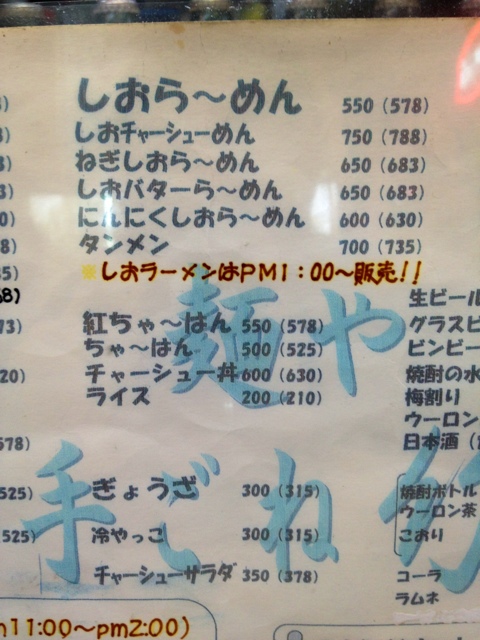 しおら～めん 550（578）
しおチャーシューめん 750（788）
ねぎしおら～めん 650（683）
しおバターら～めん 650（683）
にんにくしおら～めん 600（630）
タンメン 700（735）
※しおラーメンはPM1：00～販売！！
紅ちゃ～はん 550（578）
ちゃ～はん 500（525）
チャーシュー丼 600（630）
ライス 200（210）
ぎょうざ 300（315）
冷やっこ 300（315）
チャーシューサラダ 350（378）
生ビール
グラスビ
ビンビー
焼酎の水
梅割り
ウーロン
日本酒（
焼酎ボトル
ウーロン茶
こおり
コーラ
ラムネ
麺や
手ごね
11:00～pm2:00)